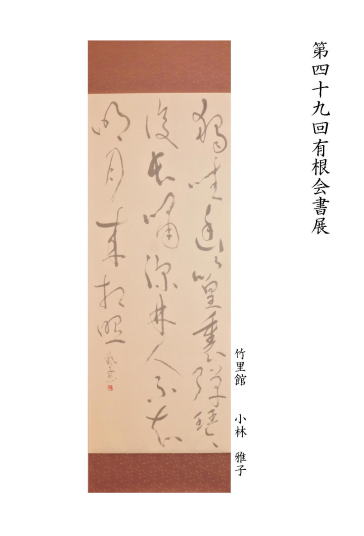 第四十九回有根会書展
竹里館 小林 雅子
獨坐幽篁裏弾琴
復長嘯深林人不知
明月来相照